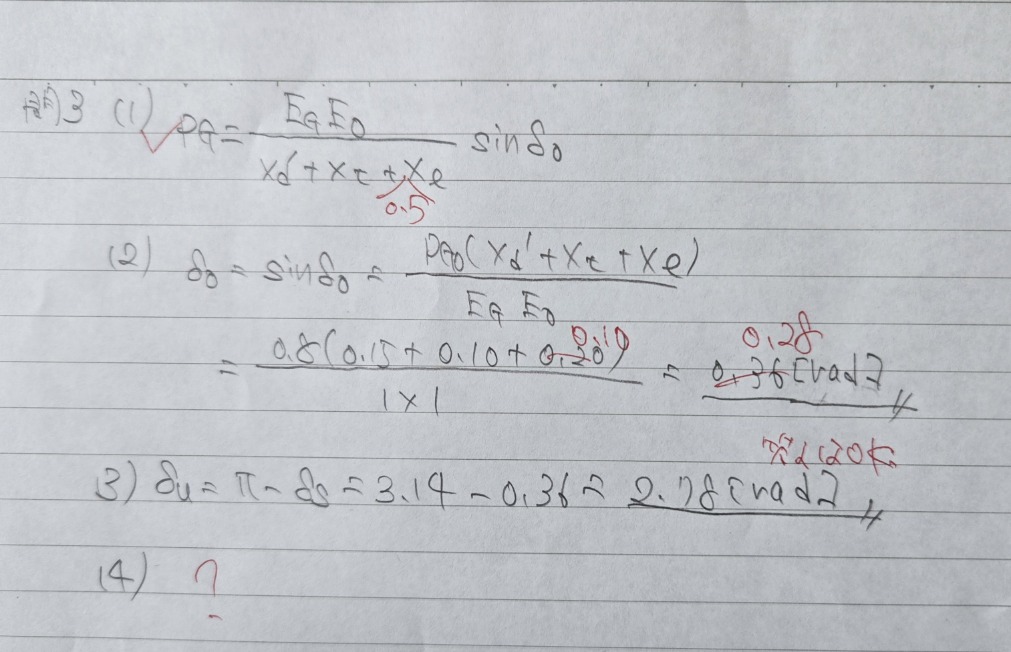 問3 (1) ✓ PG = EG E0 / (Xd' + Xt + Xe) sin δ0
0.5
(2) δ0 = sin δ0 = PG0 (Xd' + Xt + Xe) / EG E0
= 0.8 (0.15 + 0.10 + 0.20) / 1×1 = 0.36 [rad]
0.10 0.28
3) δu = π - δs = 3.14 - 0.36 = 2.78 [rad]
(4) ?